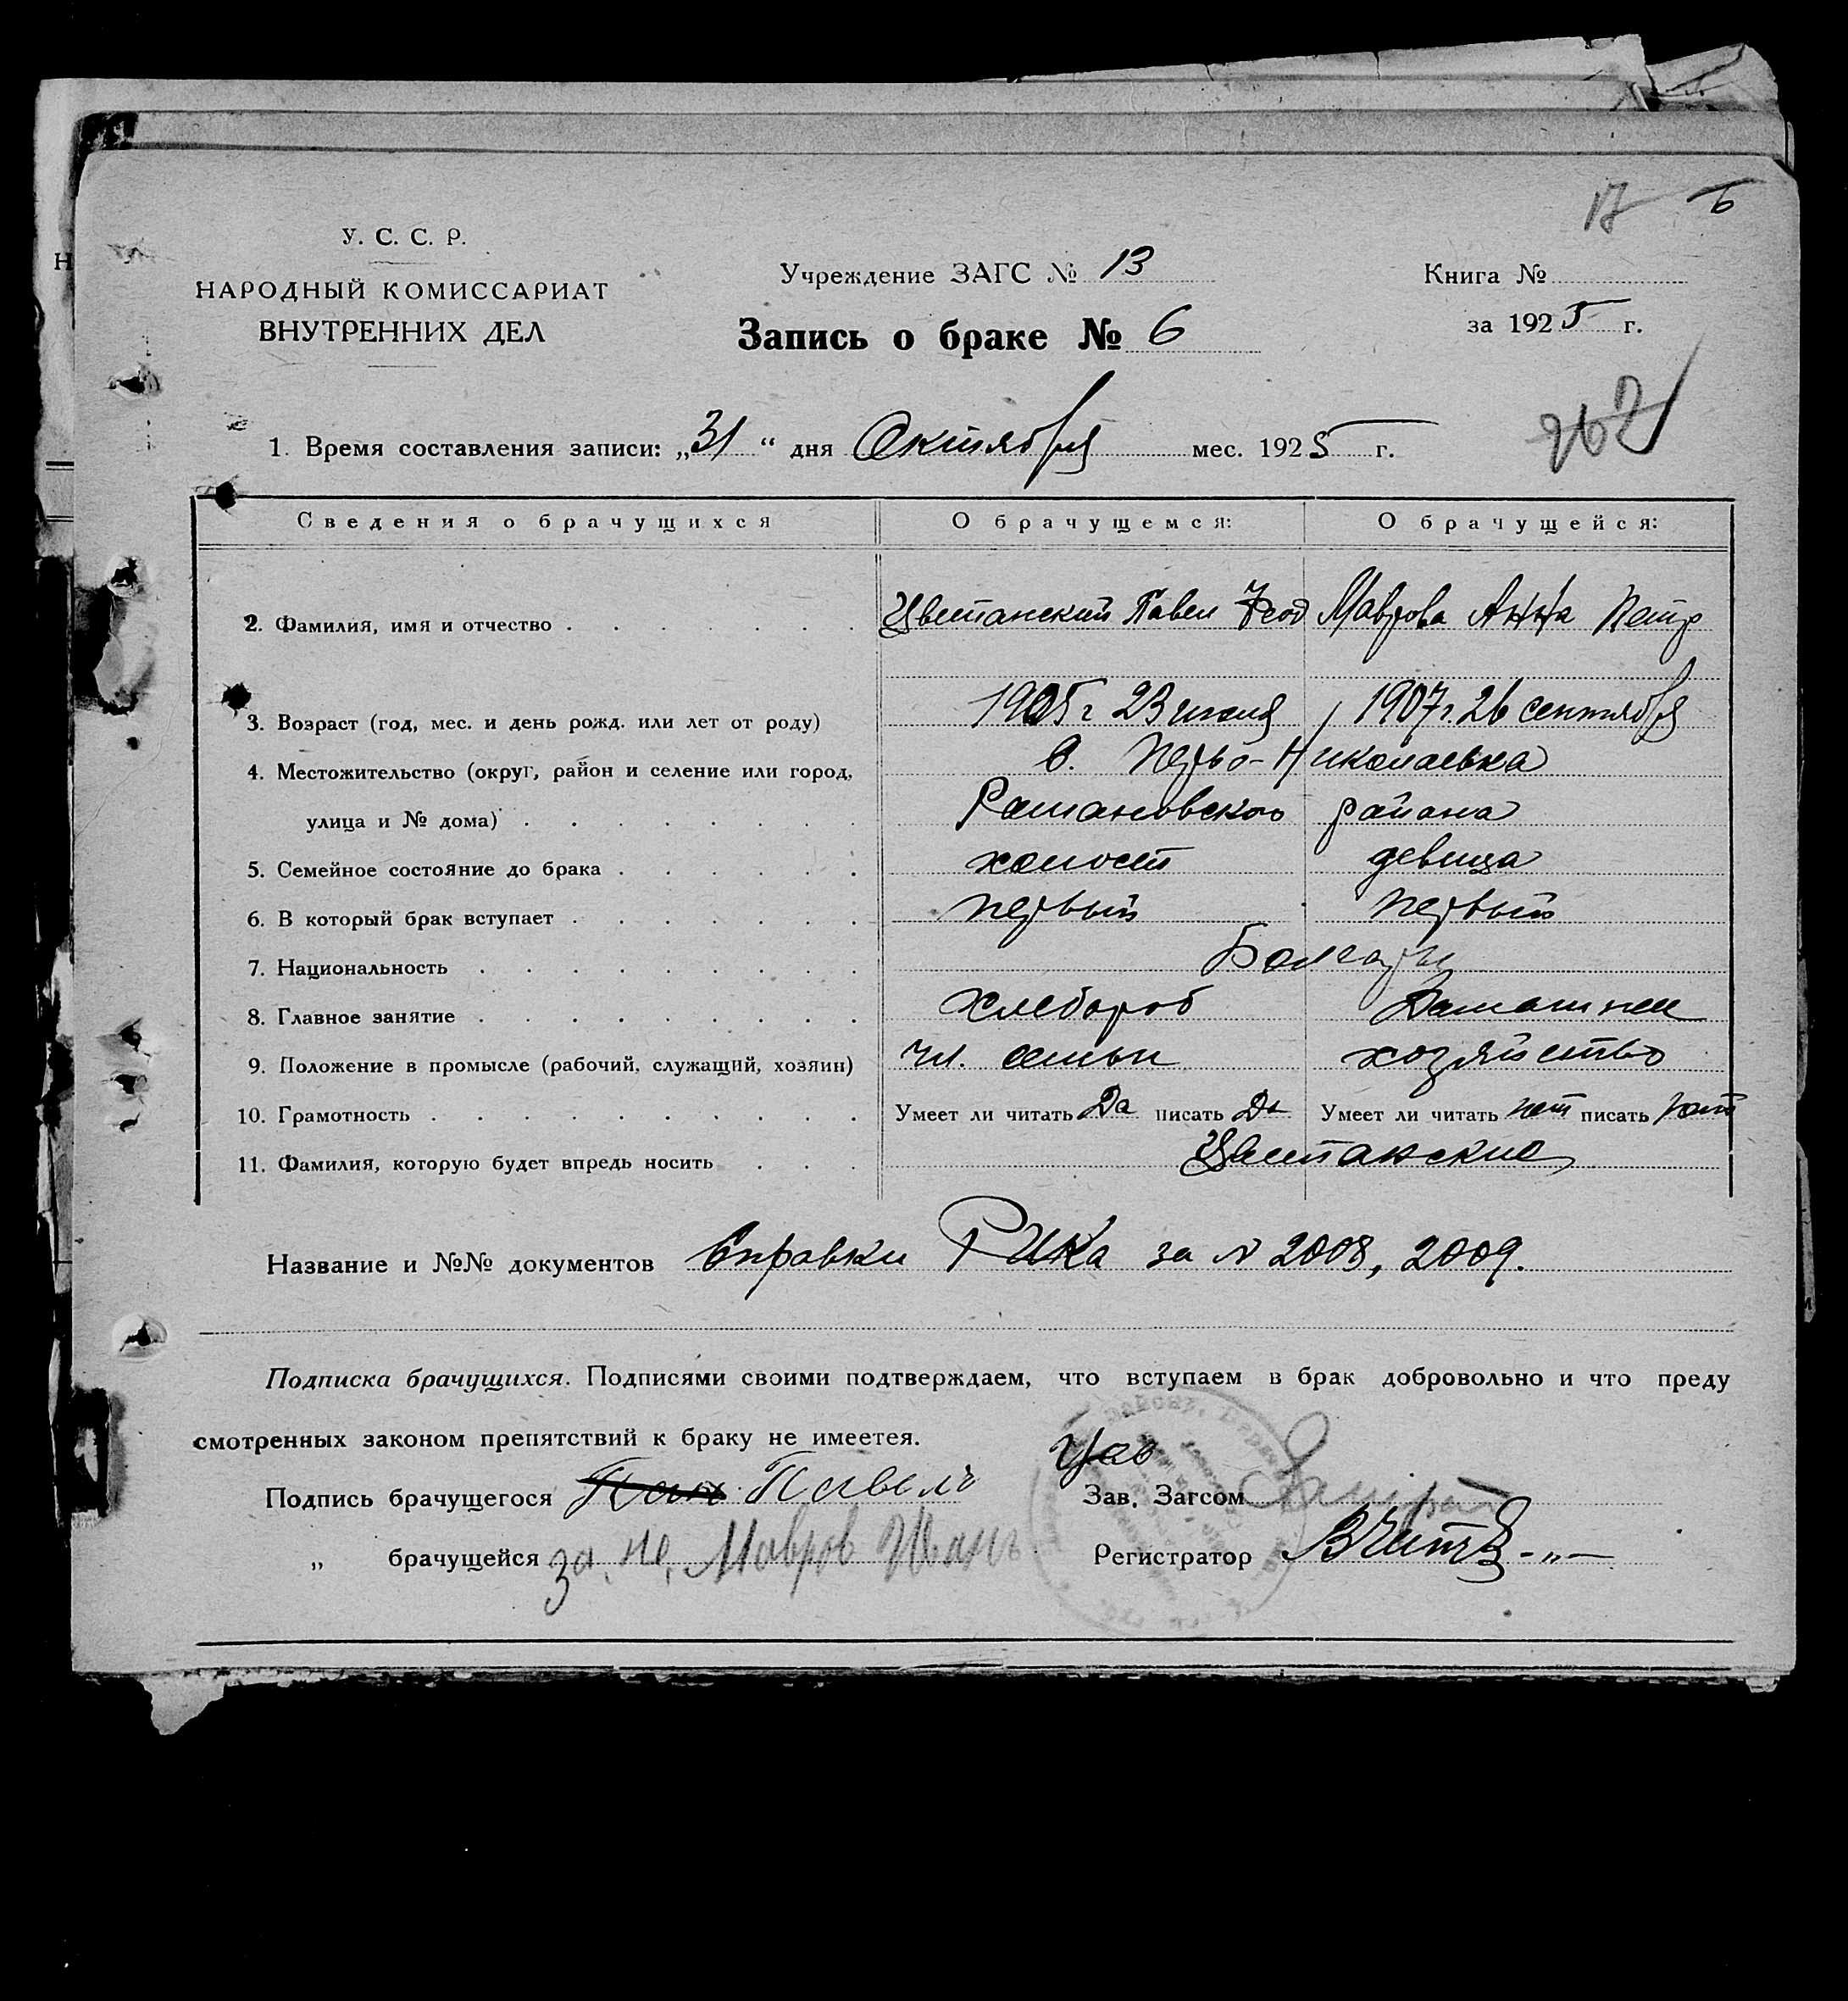 17 6
У. С. С. Р.
НАРОДНЫЙ КОМИССАРИАТ
ВНУТРЕННИХ ДЕЛ
Учреждение ЗАГС № 13
Книга №
Запись о браке № 6
за 1925 г.
262
1. Время составления записи: „31“ дня Октября мес. 1925 г.
Сведения о брачущихся О брачущемся: О брачущейся:
2. Фамилия, имя и отчество Цветанский Павел Феод Маврова Анна Петр
3. Возраст (год, мес. и день рожд. или лет от роду) 1905 г 23 1907 г. 26 сентября
4. Местожительство (округ, район и селение или город, с. Перво-Николаевка
улица и № дома) района
5. Семейное состояние до брака холост девица
6. В который брак вступает первый первый
7. Национальность Болгары
8. Главное занятие хлебороб Домашнее
9. Положение в промысле (рабочий, служащий, хозяин) чл. семьи хозяйство
10. Грамотность Умеет ли читать Да писать Да Умеет ли читать нет писать нет
11. Фамилия, которую будет впредь носить Цветанские
Название и №№ документов Справки РИКа за № 2008, 2009.
Подписка брачущихся. Подписями своими подтверждаем, что вступаем в брак добровольно и что преду
смотренных законом препятствий к браку не имеетея.
Подпись брачущегося Павелъ Зав. Загсом
„ брачущейся за не, Мавров Иванъ Регистратор